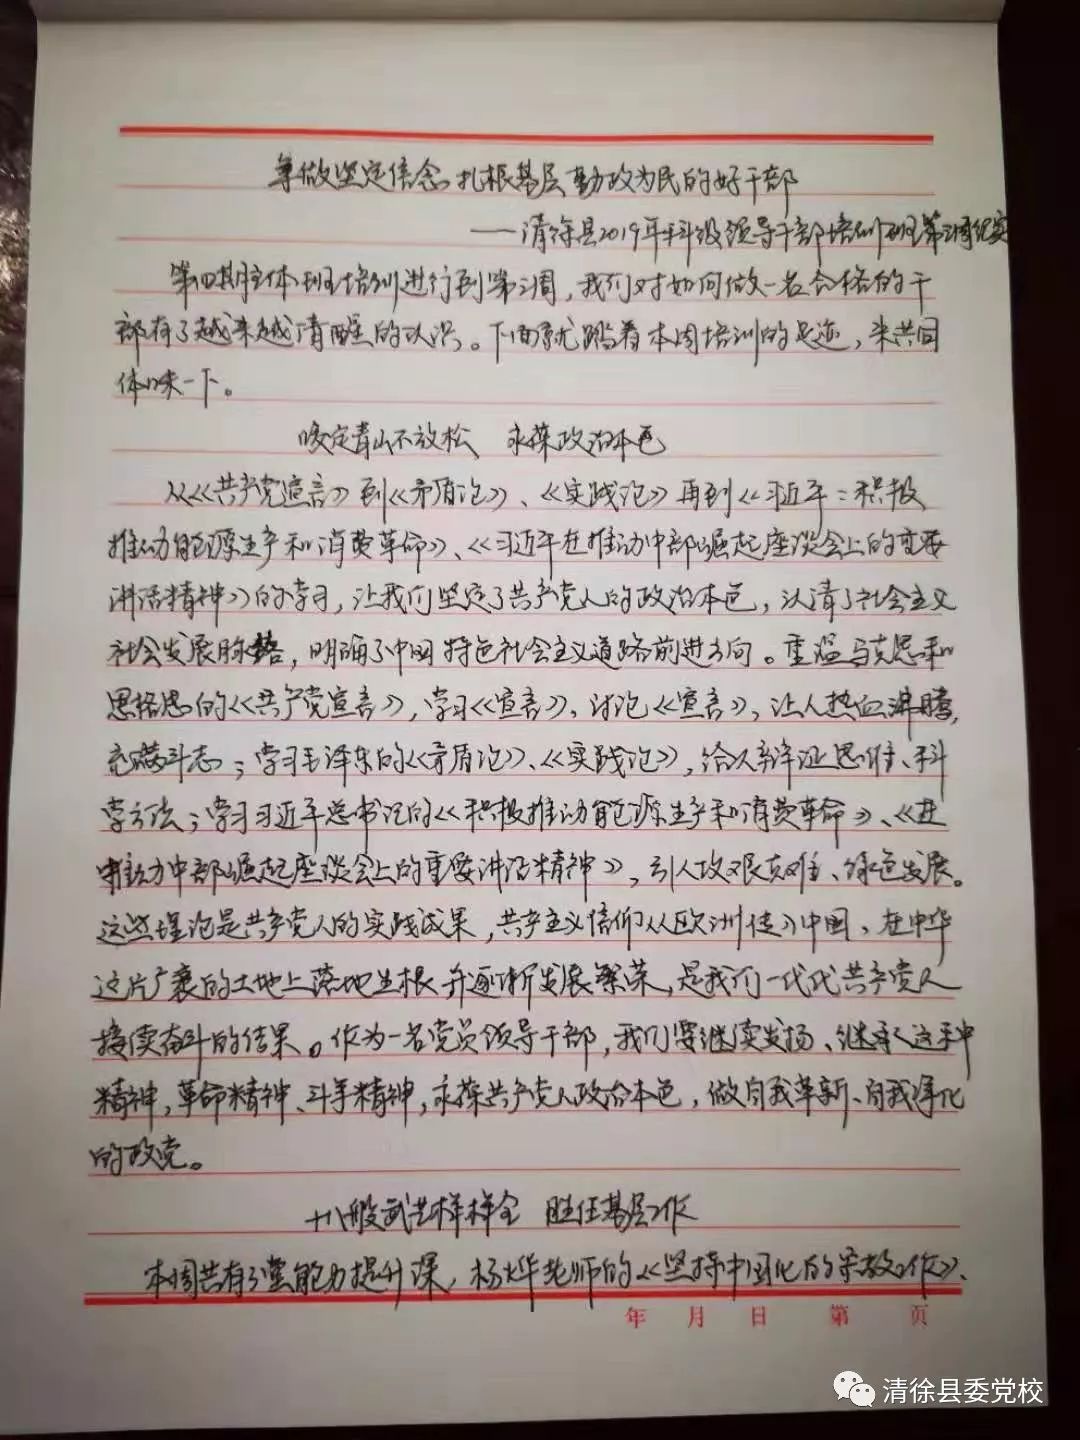 争做坚定信念 扎根基层 勤政为民的好干部
——清徐县2019年科级领导干部培训班第三周纪实
第四期主体班培训进行到第三周，我们对如何做一名合格的干
部有了越来越清醒的认识。下面就踏着本周培训的足迹，来共同
体味一下。
咬定青山不放松 永葆政治本色
从《共产党宣言》到《矛盾论》、《实践论》再到《习近平：积极
推动能源生产和消费革命》、《习近平在推动中部崛起座谈会上的重要
讲话精神》的学习，让我们坚定了共产党人的政治本色，认清了社会主义
社会发展脉络，明确了中国特色社会主义道路前进方向。重温马克思和
恩格思的《共产党宣言》，学习《宣言》、讨论《宣言》，让人热血沸腾，
充满斗志；学习毛泽东的《矛盾论》、《实践论》，给人辩证思维、科
学方法；学习习近平总书记的《积极推动能源生产和消费革命》、《在
推动中部崛起座谈会上的重要讲话精神》，引人攻艰克难、绿色发展。
这些理论是共产党人的实践成果，共产主义信仰从欧洲传入中国、在中华
这片广袤的土地上落地生根并逐渐发展繁荣，是我们一代代共产党人
接续奋斗的结果。作为一名党员领导干部，我们要继续发扬、继承这种
精神，革命精神、斗争精神，永葆共产党人政治本色，做自我革新、自我净化
的政党。
十八般武艺样样全 胜任基层工作
本周共有3堂能力提升课，杨烨老师的《坚持中国化的宗教工作》、
年 月 日 第 页
清徐县委党校